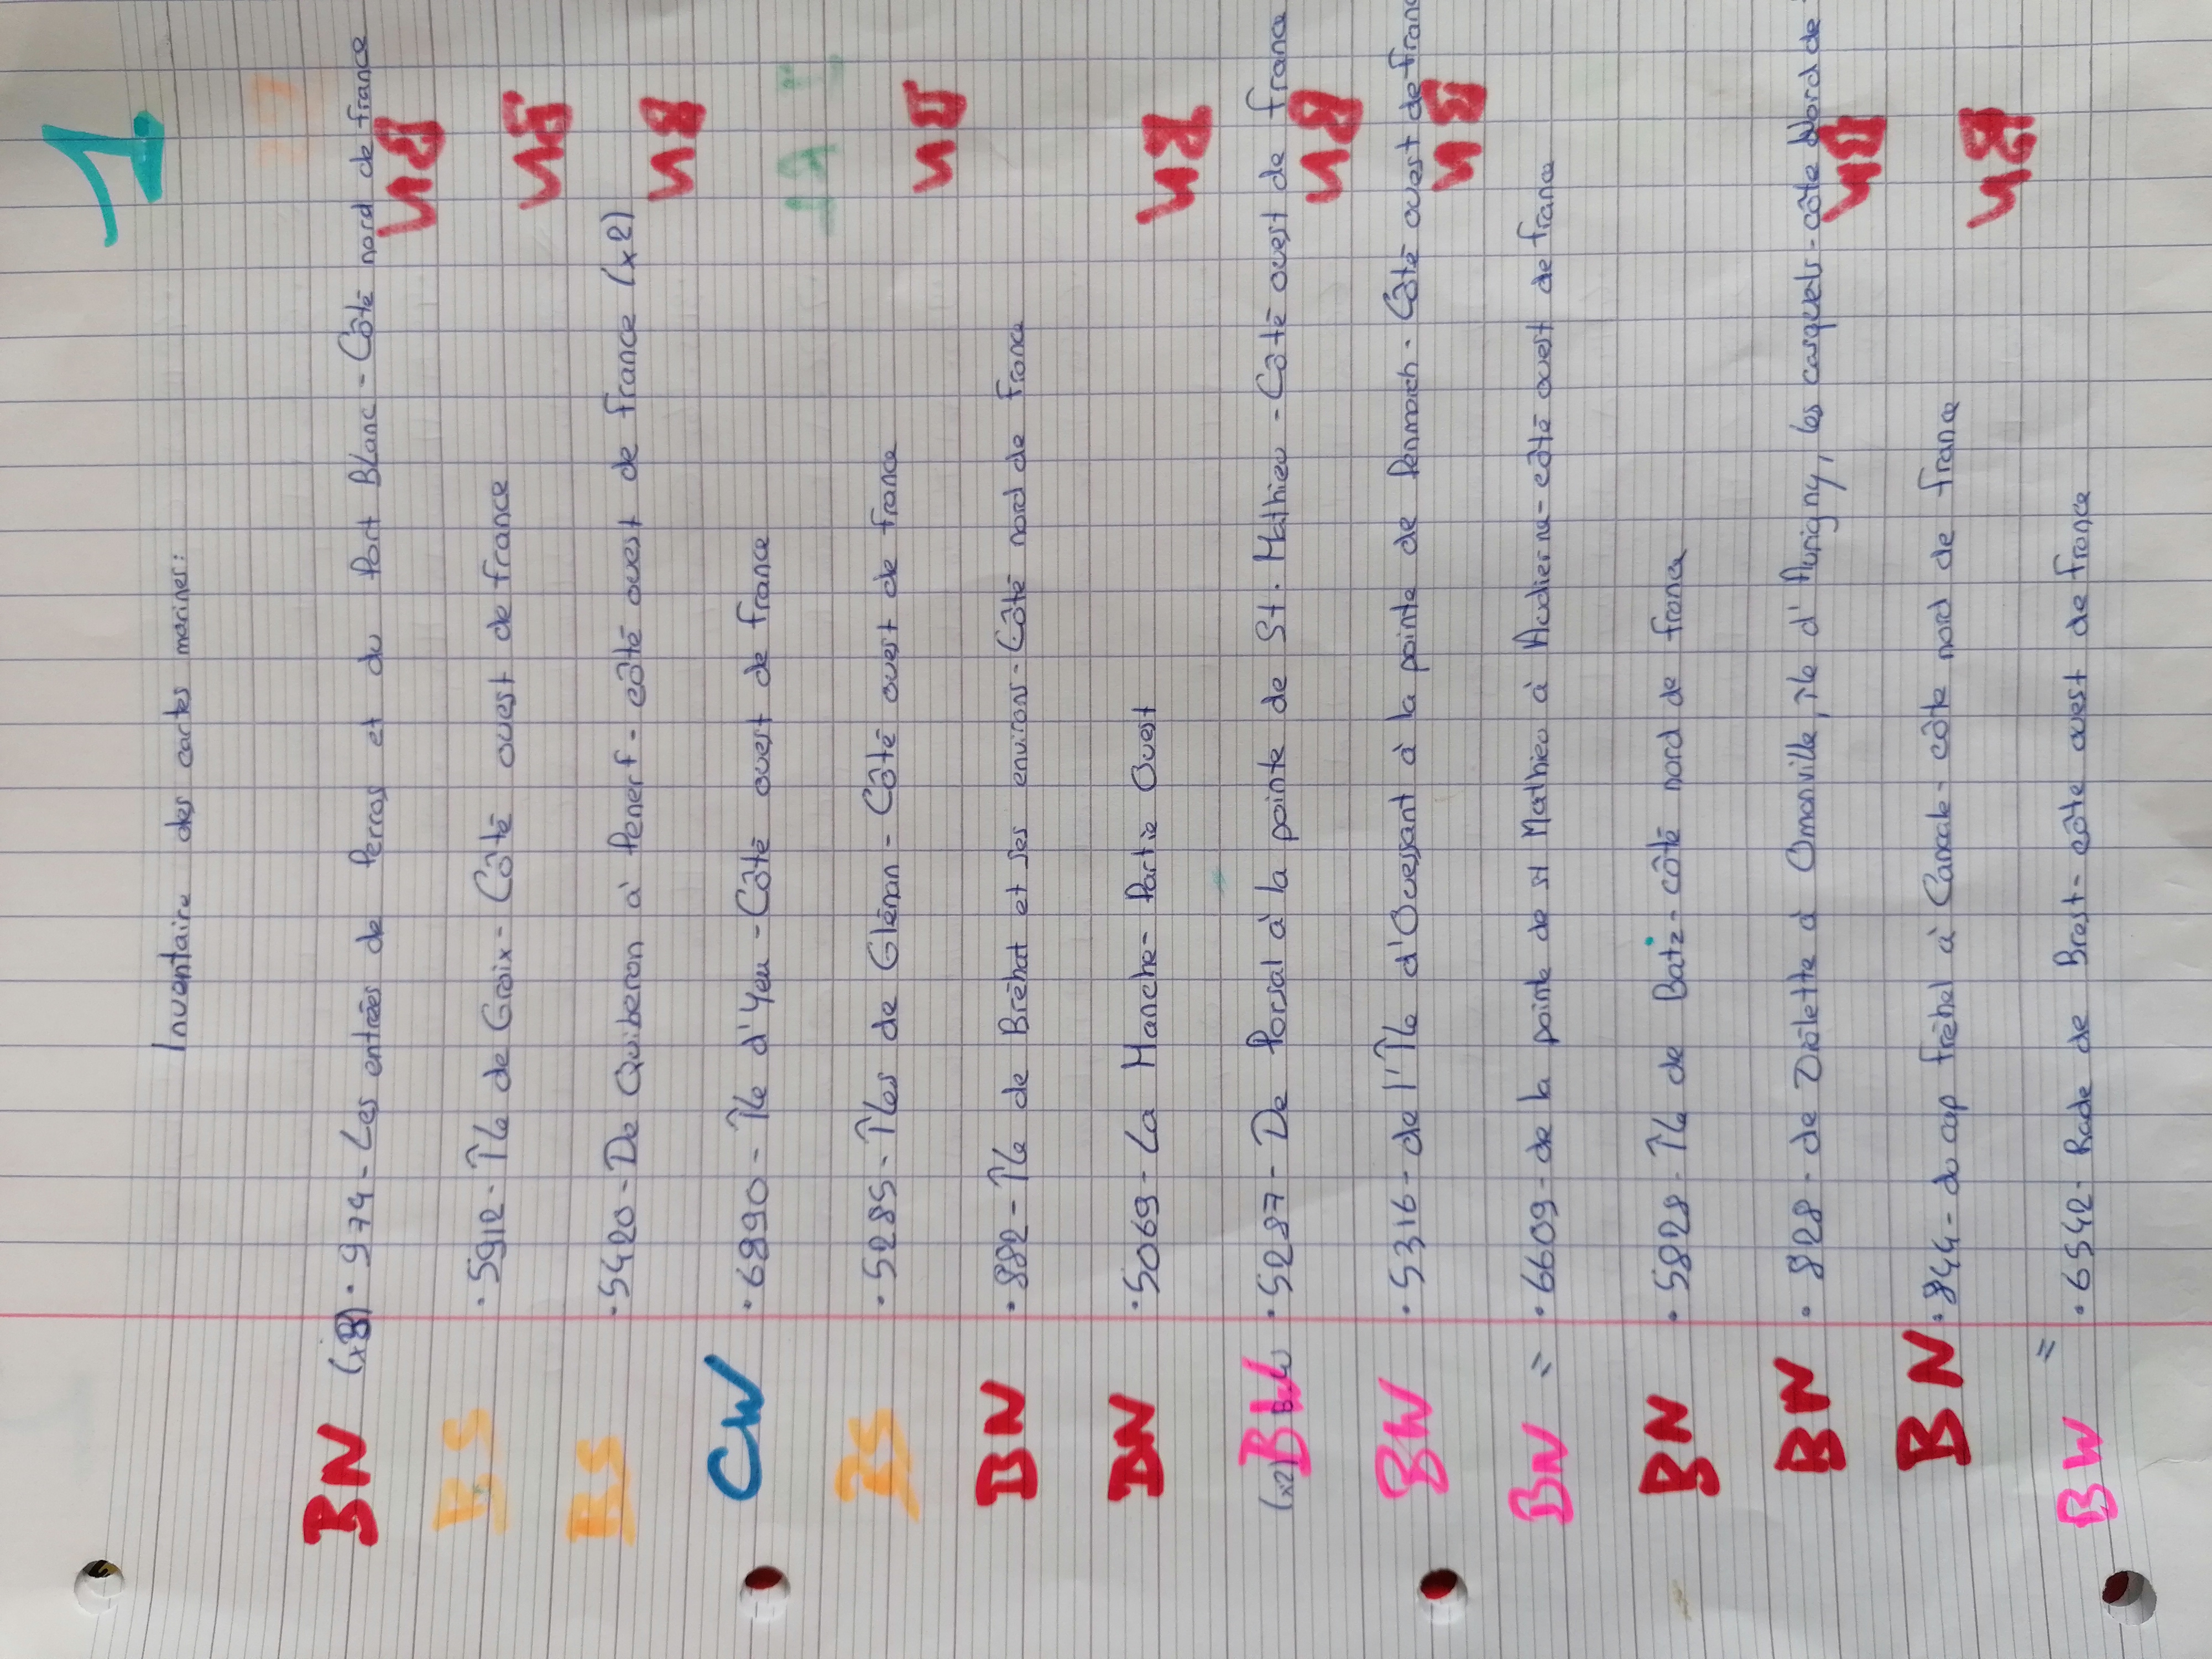 1
Inventaire des cartes marines:
BN (x3) • 974 - Les entrées de Perros et du Port Blanc - Côté nord de france
BS • 5912 - Île de Groix - Côté ouest de france
BS • 5420 - De Quiberon à Penerf - côté ouest de france (x2)
CW • 6890 - Île d'Yeu - Côté ouest de france
BS • 5285 - Îles de Glénan - Côté ouest de france
BN • 882 - Île de Bréhat et ses environs - Côté nord de france
BN • 5069 - La Manche - Partie Ouest
(x2) BW • 5287 - De Porsal à la pointe de St. Mathieu - Côté ouest de france
BW • 5316 - de l'Île d'Ouessant à la pointe de Penmarch - Côté ouest de france
BN = • 6609 - de la pointe de st Mathieu à Audierne - côté ouest de france
BN • 5828 - Île de Batz - côté nord de france
BN • 828 - de Diélette à Omonville, île d'Aurigny, les casquets - côte Nord de
BN • 844 - du cap fréhel à Cancale - côte nord de france
BW = • 6542 - Rade de Brest - côte ouest de france